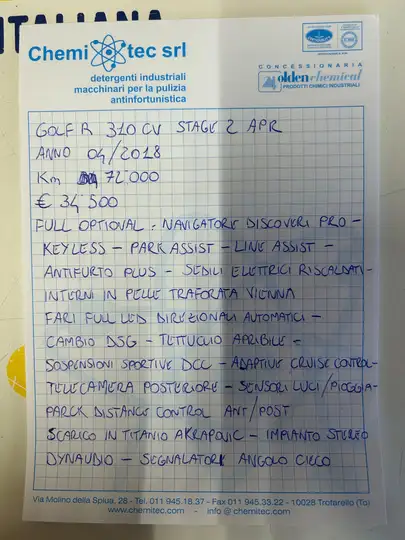 ITALIANA
Chemi tec srl
detergenti industriali
macchinari per la pulizia
antinfortunistica
CONCESSIONARIA
olden chemical
PRODOTTI CHIMICI INDUSTRIALI
GOLF R 310 CV STAGE 2 APR
ANNO 04/2018
Km 72.000
€ 34 500
FULL OPTIONAL - NAVIGATORE DISCOVERI PRO -
KEYLESS - PARK ASSIST - LINE ASSIST -
ANTIFURTO PLUS - SEDILI ELETTRICI RISCALDATI -
INTERNI IN PELLE TRAFORATA VIENNA
FARI FULL LED DIREZIONALI AUTOMATICI -
CAMBIO DSG - TETTUCCIO APRIBILE -
SOSPENSIONI SPORTIVE DCC - ADAPTIVE CRUISE CONTROL -
TELECAMERA POSTERIORE - SENSORI LUCI/PIOGGIA -
PARCK DISTANCE CONTROL ANT/POST
SCARICO IN TITANIO AKRAPOVIC - IMPIANTO STEREO
DYNAUDIO - SEGNALATORE ANGOLO CIECO
Via Molino della Splua, 28 - Tel. 011 945.18.37 - Fax 011 945.33.22 - 10028 Trofarello (To)
www.chemitec.com - info @ chemitec.com